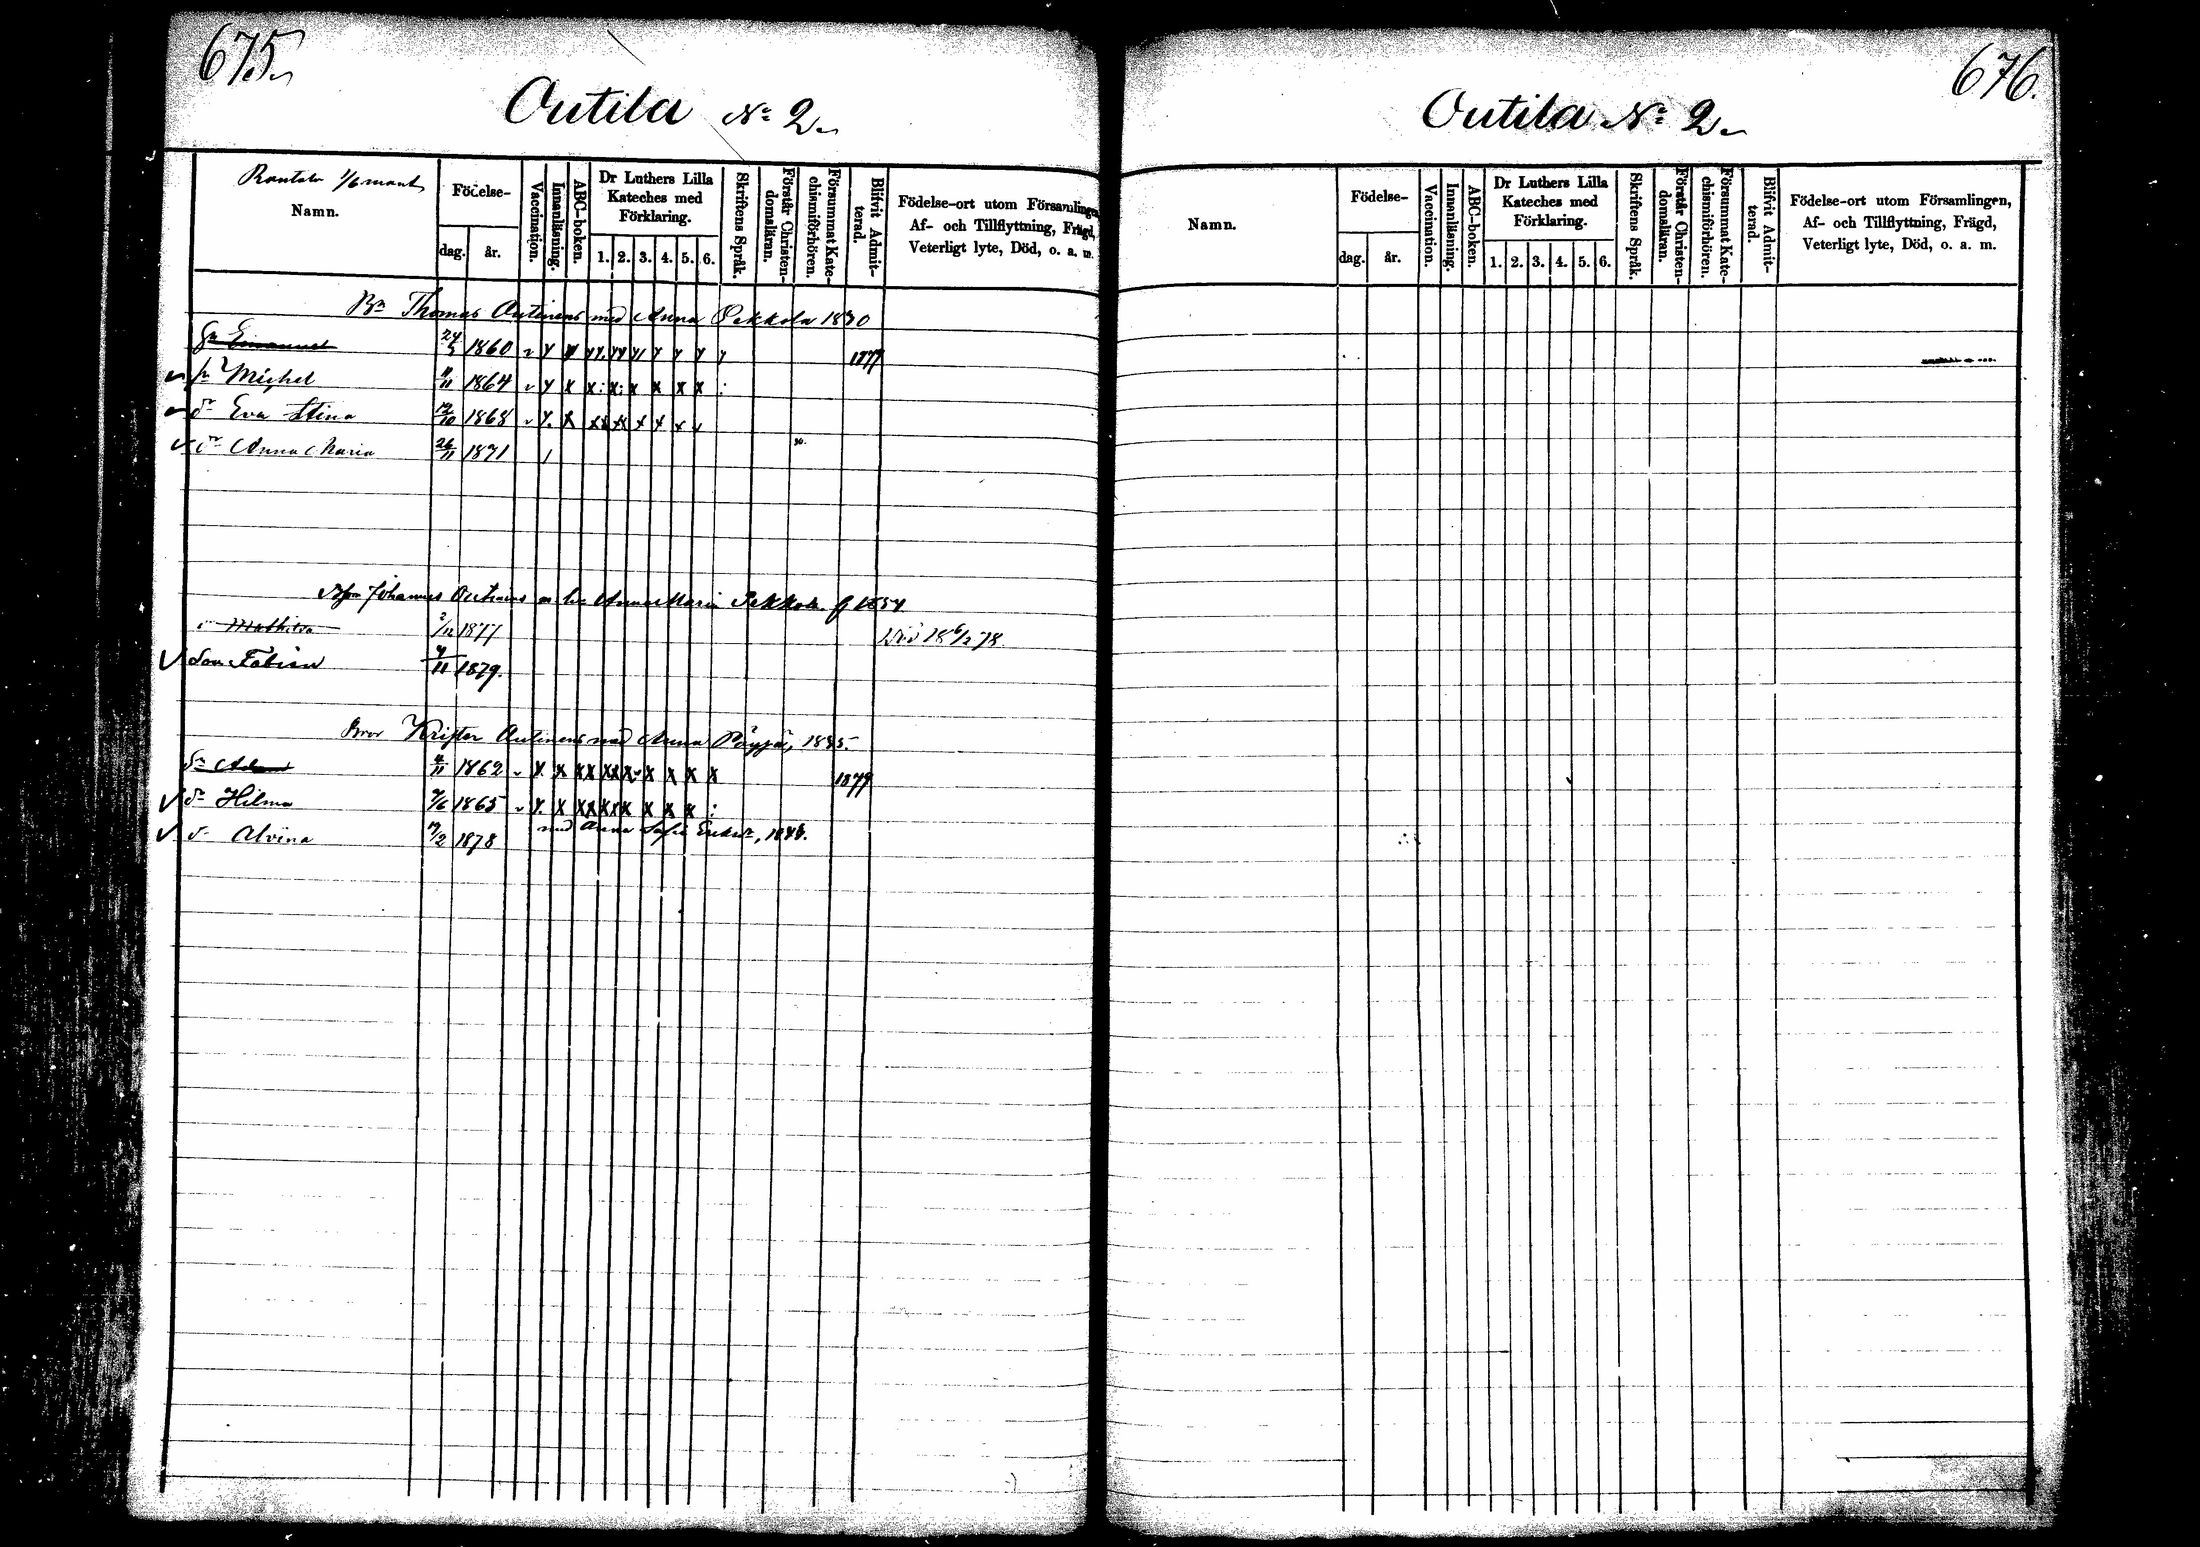 675.
Outila No 2.
Rantala 1/6 mant
Namn.
Födelse-
dag.
år.
Vaccination.
Innanläsning.
ABC-boken.
Dr Luthers Lilla
Kateches med
Förklaring.
1. 2. 3. 4. 5. 6.
Skriftens Språk.
Förstår Christen-
domsläran.
Försummat Kate-
chismiförhören.
Blifvit Admit-
terad.
Födelse-ort utom Församlingen,
Af- och Tillflyttning, Frägd,
Veterligt lyte, Död, o. a. m.
Bn Thomas Outinens med Anna Pekkola 1830
Sn Emanuel 24/5 1860 1877
sn Michel 11/11 1864
dr Eva Stina 1868
dr Anna Maria 26/11 1871
Johannes Outinens Anna Maria Pekkola f 1854
Mathilda 2/12 1877 Död 18 6/2 78.
Son Fabian 4/11 1879.
Bror Krister Outinens med Anna Pöyjä, 1835.
Sn Adam 1862 1879
dr Hilma 1865
d. Alvina 1878 med Anna Sofia
676.
Outila No 2.
Namn.
Födelse-
dag.
år.
Vaccination.
Innanläsning.
ABC-boken.
Dr Luthers Lilla
Kateches med
Förklaring.
1. 2. 3. 4. 5. 6.
Skriftens Språk.
Förstår Christen-
domsläran.
Försummat Kate-
chismiförhören.
Blifvit Admit-
terad.
Födelse-ort utom Församlingen,
Af- och Tillflyttning, Frägd,
Veterligt lyte, Död, o. a. m.